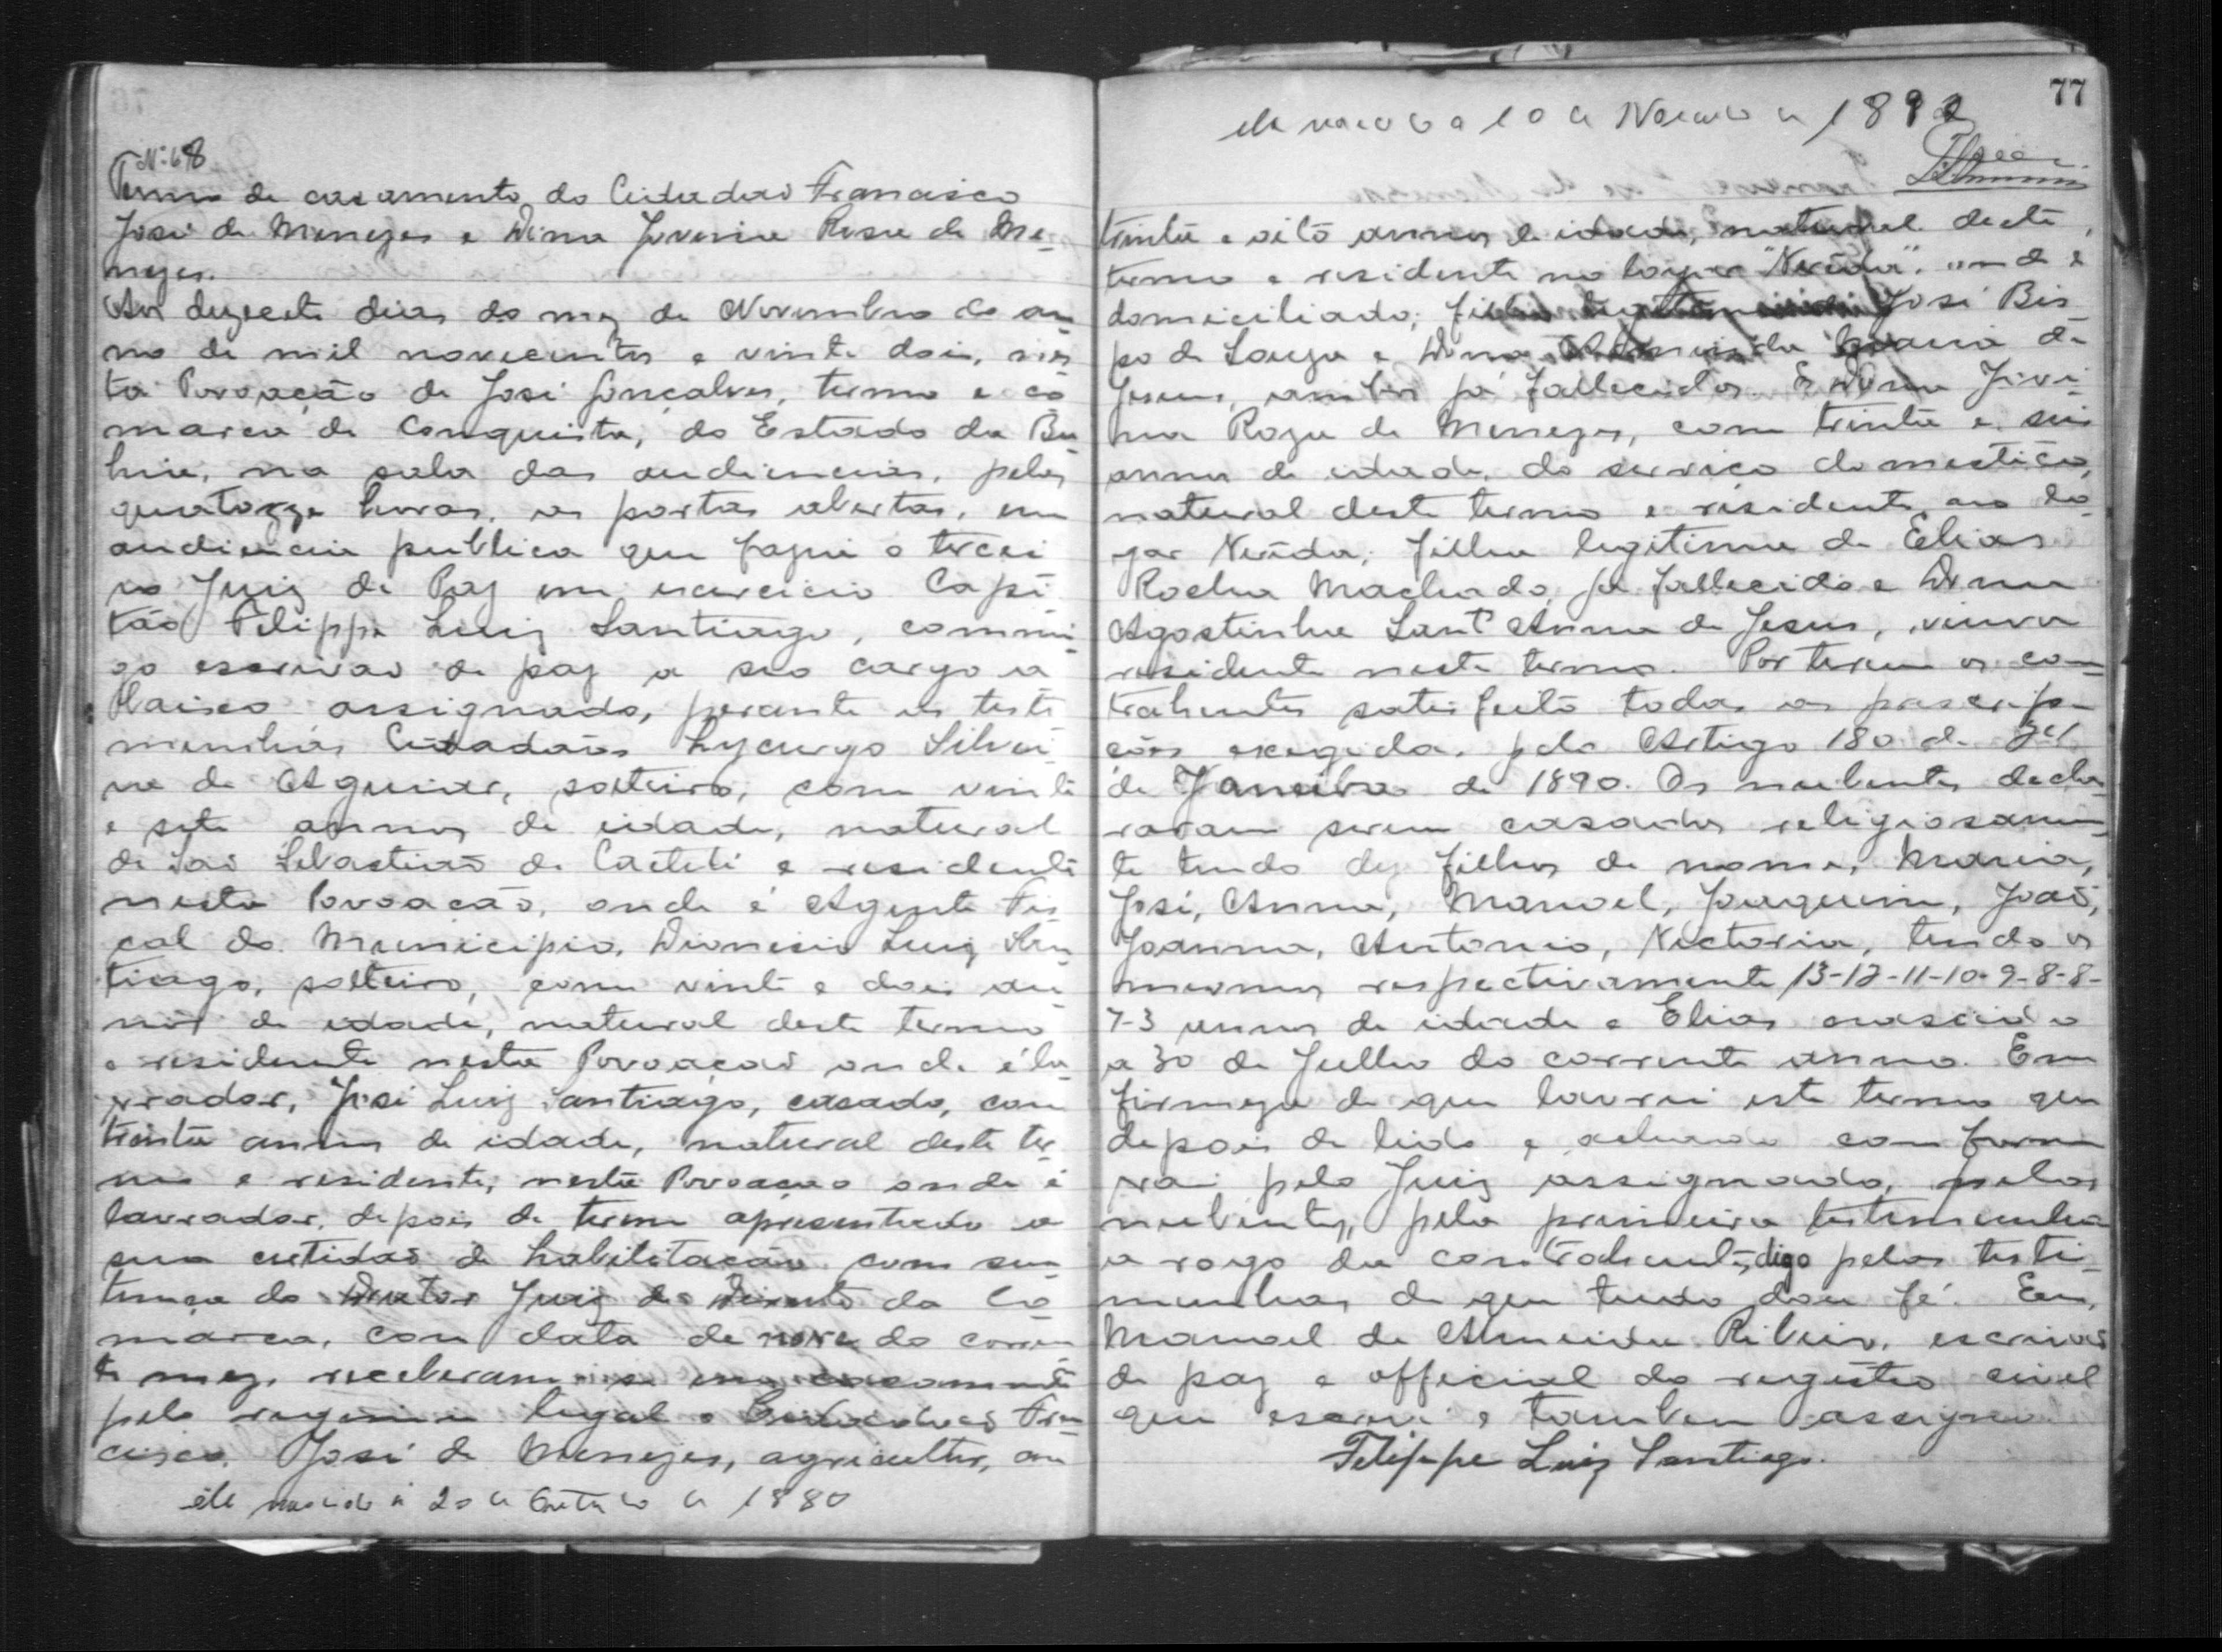 Nº 68
Termo de casamento do Cidadão Francisco
José de Menezes e Dona Jovina Rosa de Me-
nezes.
Aos dezesete dias do mez de Novembro do an-
no de mil novecentos e vinte dois, nes-
ta Povoação de José Gonçalves, termo e co-
marca de Conquista, do Estado da Ba-
hia, na sala das audiencias, pelas
quatorze horas, as portas abertas, em
audiencia publica que fazia o tercei-
ro Juiz de Paz em exercicio Capi-
tão Filippe Luiz Santiago, commi-
go escrivão de paz a seo cargo a
baixo assignado, perante as teste-
munhas Cidadãos Lycurgo Silvei-
ra de Aguiar, solteiro, com vinte
e sete annos de idade, natural
de São Sebastião de Caeteti e residente
nesta Povoação, onde é Agente Fis-
cal do Municipio, Dionisio Luiz San-
tiago, solteiro, com vinte e dois an-
nos de idade, natural deste termo
e residente nesta Povoação onde é la-
vrador, José Luiz Santiago, casado, com
trinta annos de idade, natural deste ter-
mo e residente, nesta Povoação onde é
lavrador, depois de terem apresentado a
sua certidão de habilitação com sen-
tença do Doutor Juiz de Direito da Co-
marca, com data de nove do corren-
te mez, receberam-se em casamento
pelo regimen legal o Cidadão Fran-
cisco José de Menezes, agricultor, com
ele nascido a 20 de Outubro de 1880
77
a 10 de de 189
trinta e oito annos de idade, natural deste
termo e residente no logar "Nereda", onde é
domiciliado; filho legitimo de José Bis-
po de Souza e Dona Maria de
Jesus, ambos já fallecidos. E Dona Jovi-
na Roza de Menezes, com trinta e seis
annos de idade, do serviço domestico,
natural deste termo e residente no lo-
gar Nereda; filha legitima de Elias
Rocha Machado, já fallecido e Dona
Agostinha Sant'Anna de Jesus, viuva
residente neste termo. Por terem os con-
trahentes satisfeito todas as prescrip-
ções exegidas pelo Artigo 180 de 24
de Janeiro de 1890. Os nubentes decla-
raram serem casados religiosamen-
te tendo dez filhos de nomes Maria,
José, Anna, Manoel, Joaquim, João,
Joanna, Antonio, Victoria, tendo os
mesmos respectivamente 13-12-11-10-9-8-8-
7-3 annos de idade e Elias nascido
a 30 de Julho do corrente anno. Em
firmeza de que lavrei este termo que
depois de lido e achado conforme
vai pelo Juiz assignado, pelos
nubentes, pela primeira testemunha
a rogo da contrahente, digo pelas teste-
munhas de que tudo dou fé. Eu,
Manoel de Almeida Ribeiro, escrivão
de paz e official do registro civil
que escrevi e tambem assigno.
Filippe Luiz Santiago.